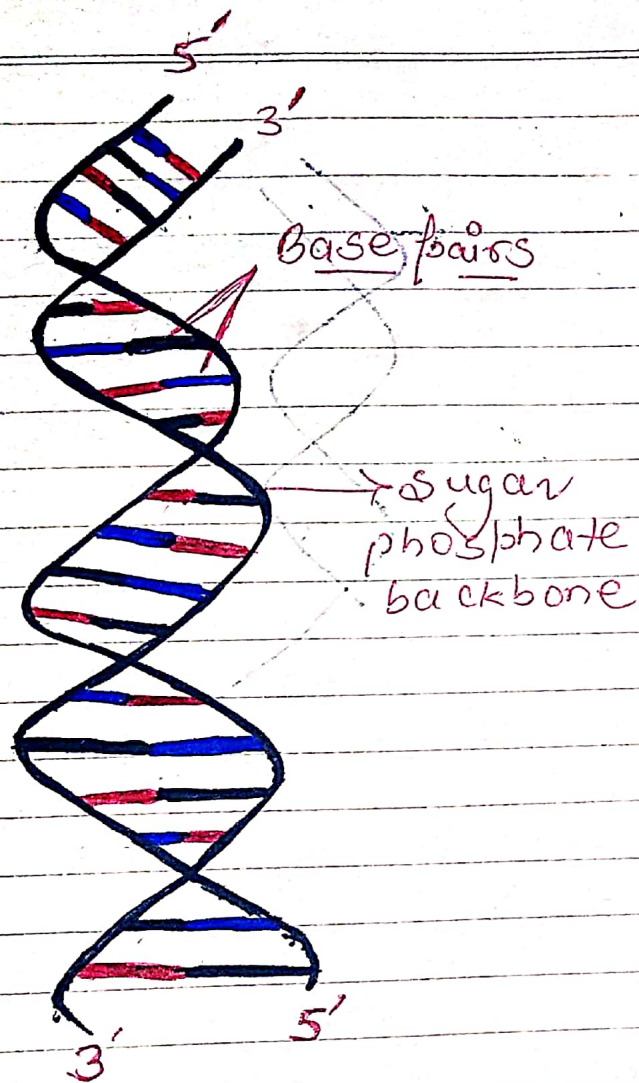 5′
3′
Base pairs
sugar
phosphate
backbone
3′
5′